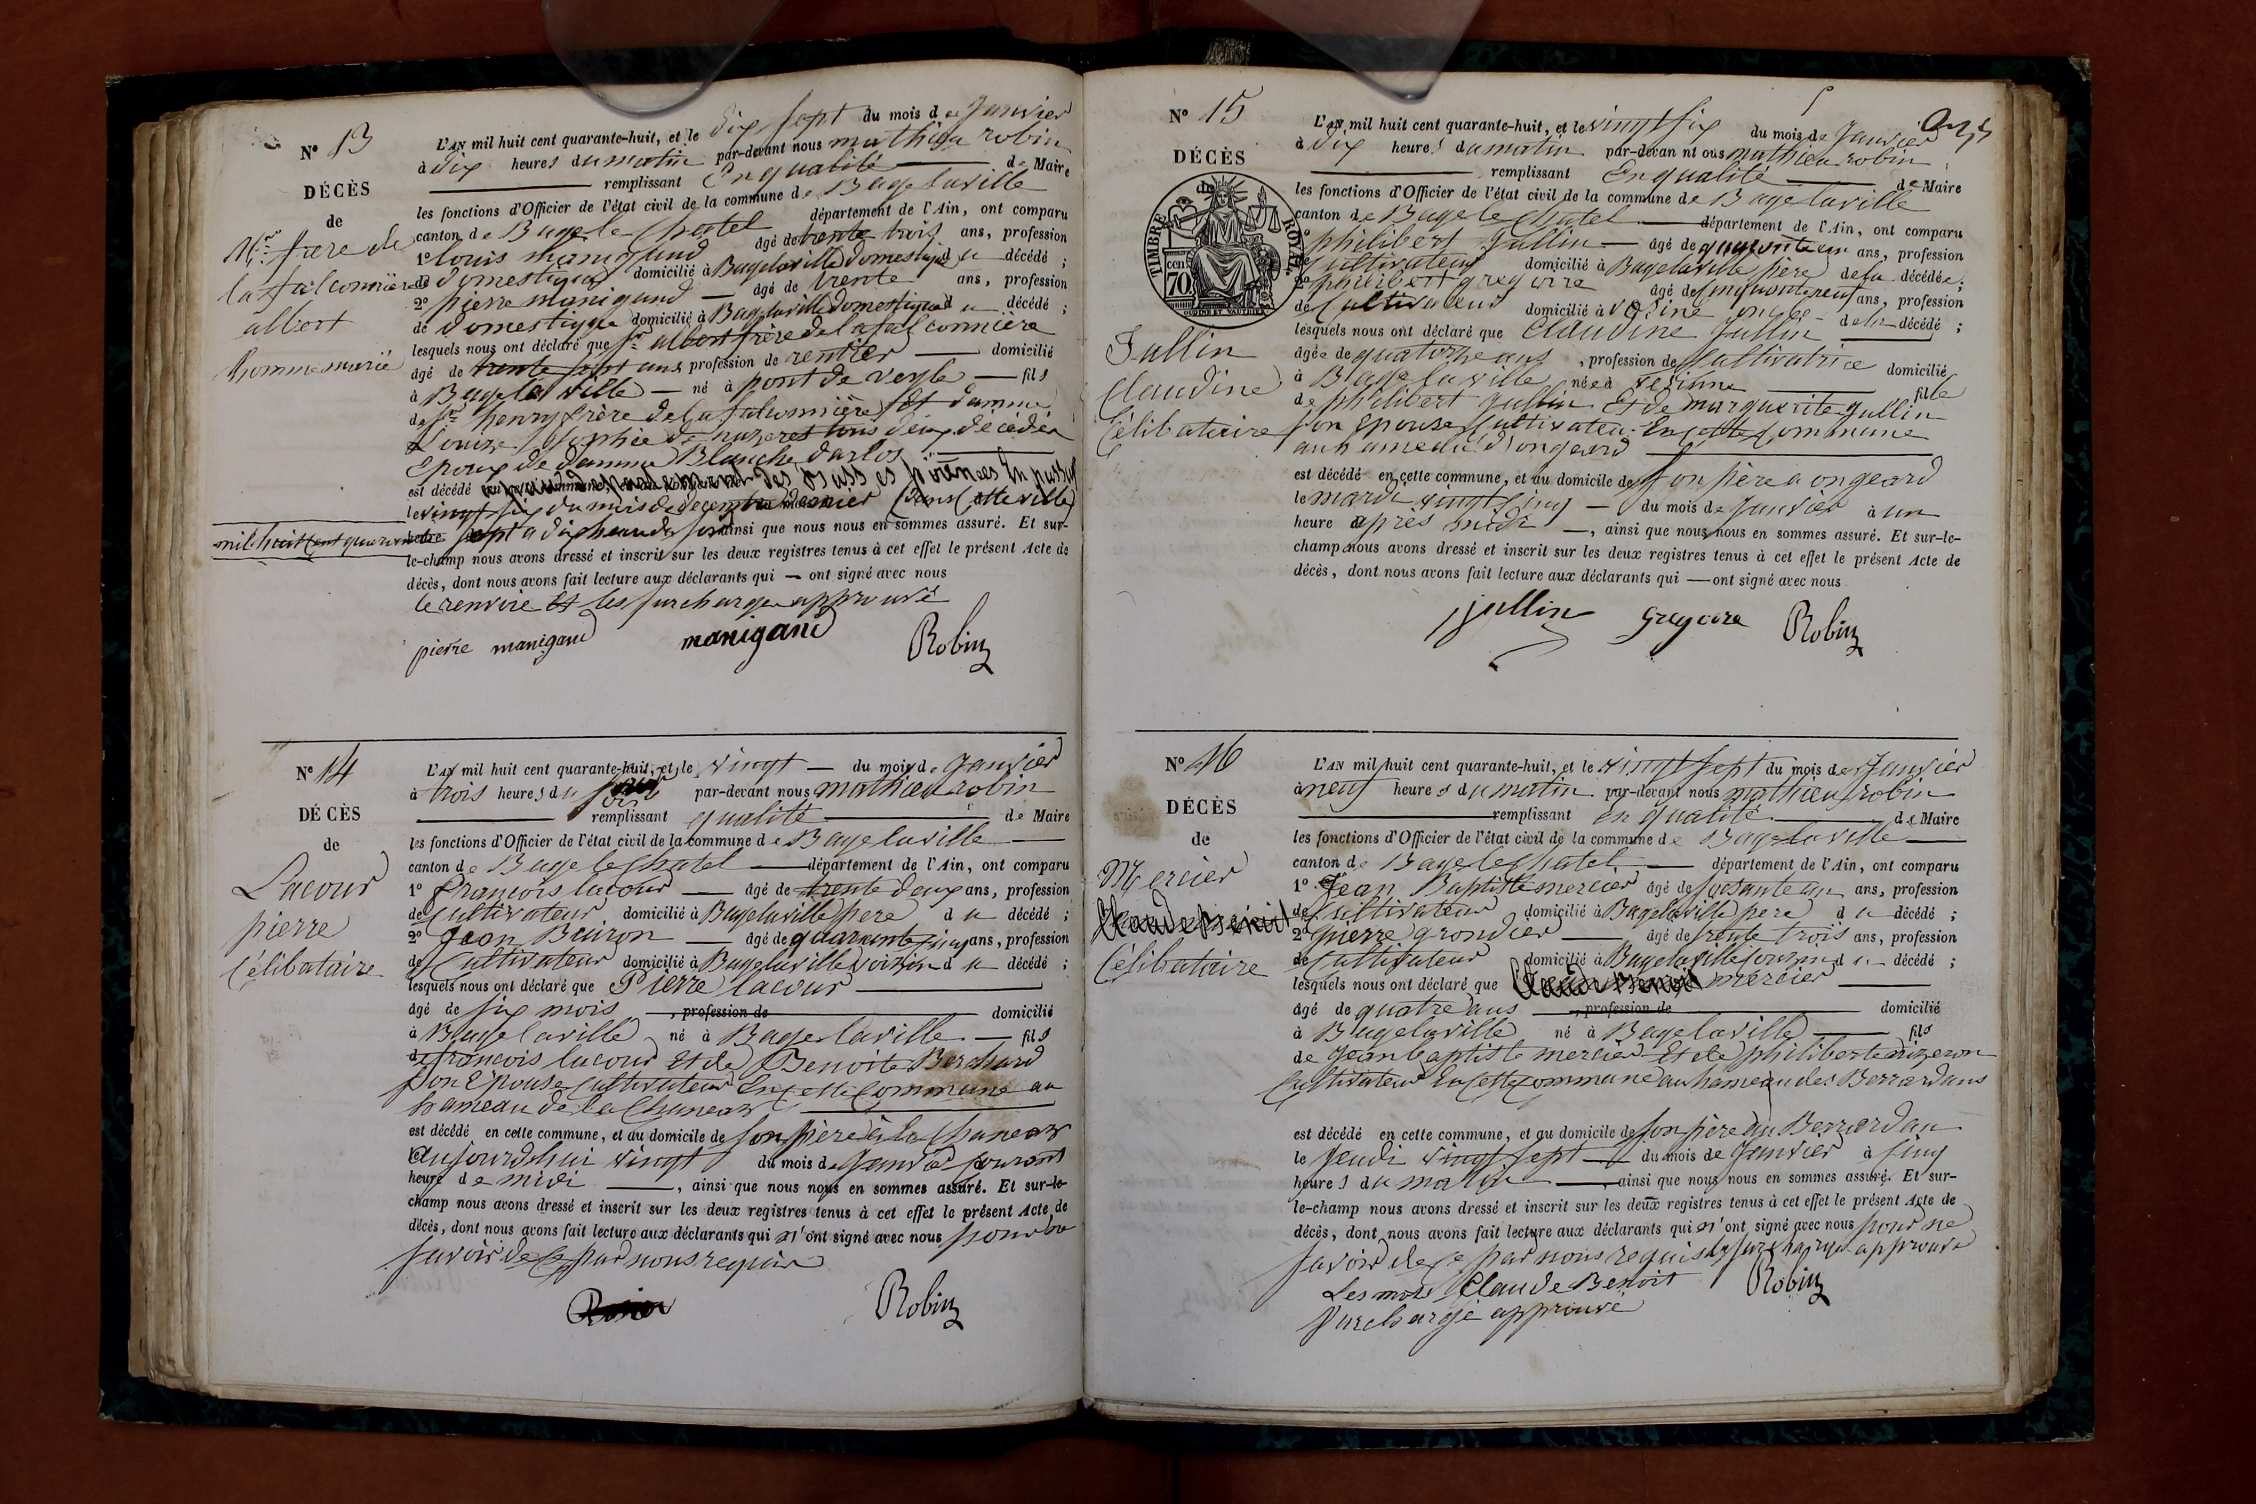 N° 13
DÉCÈS
de
Mr. frere de
la falconnière
albert
homme marié
L'AN mil huit cent quarante-huit, et le dix sept du mois de Janvier
à dix heures du matin par-devant nous mathieu robin
remplissant En qualité de Maire
les fonctions d'Officier de l'état civil de la commune de Bage laville
canton de Bage le Chatel département de l'Ain, ont comparu
1° louis manigand âgé de trente trois ans, profession
de domestique domicilié à Bagelaville domestique du décédé ;
2° pierre manigand âgé de trente ans, profession
de domestique domicilié à Bagelaville domestique du décédé ;
lesquels nous ont déclaré que Sr. albert frère de la falconnière
âgé de trente sept ans profession de rentier domicilié
à Bage la ville né à pont de veyle fils
de Sr henry frère de la falconnière Et damme
Louise Sophie de tous deux décédés
Epoux de damme Blanche darlos
est décédé
le vingt six du mois de decembre dernier dans cette ville
mil huit cent quarante sept à dix heures du soir ainsi que nous nous en sommes assuré. Et sur-
le-champ nous avons dressé et inscrit sur les deux registres tenus à cet effet le présent Acte de
décès, dont nous avons fait lecture aux déclarants qui — ont signé avec nous
le renvoie Et les surcharge approuvé
pierre manigand manigand Robin
N° 14
DÉCÈS
de
Lacour
pierre
Célibataire
L'AN mil huit cent quarante-huit, et le vingt — du mois de Janvier
à trois heures du soir par-devant nous mathieu robin
remplissant qualité de Maire
les fonctions d'Officier de l'état civil de la commune de Bage laville
canton de Bage le Chatel département de l'Ain, ont comparu
1° françois lacour — âgé de trente deux ans, profession
de Cultivateur domicilié à Bagelaville pere du décédé ;
2° Jean Buiron — âgé de quarante cinq ans, profession
de Cultivateur domicilié à Bagelaville voisin du décédé ;
lesquels nous ont déclaré que Pierre lacour
âgé de six mois , profession de domicilié
à Bage laville né à Bage laville — fils
de francois lacour Et de Benoite Berchard
son Epouse Cultivateur En cette Commune au
hameau de la
est décédé en cette commune, et au domicile de son père à la
le aujourdhui vingt du mois de Janvier courant
heure de midi —, ainsi que nous nous en sommes assuré. Et sur-le-
champ nous avons dressé et inscrit sur les deux registres tenus à cet effet le présent Acte de
décès, dont nous avons fait lecture aux déclarants qui n'ont signé avec nous pour ne
savoir de ce par nous requis
Robin
N° 15
DÉCÈS
de
TIMBRE ROYAL
70 cent
Jullin
Claudine
Célibataire
L'AN mil huit cent quarante-huit, et le vingt six du mois de Janvier
à dix heures du matin par-devan nt ous mathieu robin
remplissant En qualité de Maire
les fonctions d'Officier de l'état civil de la commune de Bage laville
canton de Bage le Chatel département de l'Ain, ont comparu
1° philibert Jullin — âgé de quarante un ans, profession
de Cultivateur domicilié à Bagelaville père de la décédée ;
2° philibert gregoire âgé de Cinquante neuf ans, profession
de Cultivateur domicilié à vesine oncle de la décédé ;
lesquels nous ont déclaré que Claudine Jullin
âgée de quatorze ans , profession de Cultivatrice domicilié
à Bage laville née à vesinne fille
de philibert Jullin Et de marguerite Jullin
son Epouse Cultivateur En cette Commune
au hameau d'ongeard
est décédé en cette commune, et au domicile de son père a ongeard
le mardi vingt cinq — du mois de Janvier à un
heure après midi —, ainsi que nous nous en sommes assuré. Et sur-le-
champ nous avons dressé et inscrit sur les deux registres tenus à cet effet le présent Acte de
décès, dont nous avons fait lecture aux déclarants qui — ont signé avec nous
jullin gregoire Robin
N° 16
DÉCÈS
de
Mercier
Claude Benoit
Célibataire
L'AN mil huit cent quarante-huit, et le vingt sept du mois de Janvier
à neuf heures du matin par-devant nous mathieu robin
remplissant En qualité de Maire
les fonctions d'Officier de l'état civil de la commune de Bage laville
canton de Bage le Chatel — département de l'Ain, ont comparu
1° Jean Baptiste mercier âgé de soisante un ans, profession
de Cultivateur domicilié à Bagelaville pere du décédé ;
2° pierre grondier — âgé de trente trois ans, profession
de Cultivateur domicilié à Bagelaville du décédé ;
lesquels nous ont déclaré que Claude Benoit mercier
âgé de quatre ans , profession de domicilié
à Bage laville né à Bage laville fils
de Jean baptiste mercier Et de philiberte
Cultivateur En cette commune au hameau des Berrardans
est décédé en cette commune, et au domicile de son père au Berrardan
le Jeudi vingt sept — du mois de Janvier à cinq
heures du matin , ainsi que nous nous en sommes assuré. Et sur-
le-champ nous avons dressé et inscrit sur les deux registres tenus à cet effet le présent Acte de
décès, dont nous avons fait lecture aux déclarants qui n'ont signé avec nous pour ne
savoir de ce par nous requis la surcharge approuvé
Les mots Claude Benoit Robin
surchargé approuvé